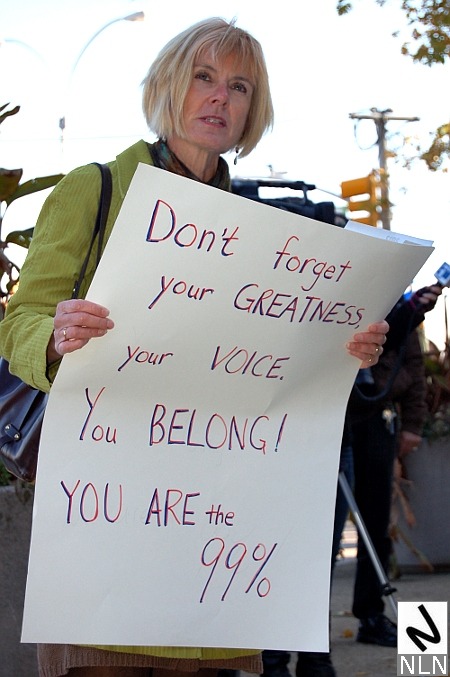 Don't forget
your GREATNESS,
your VOICE.
You BELONG!
YOU ARE the
99%
N
NLN